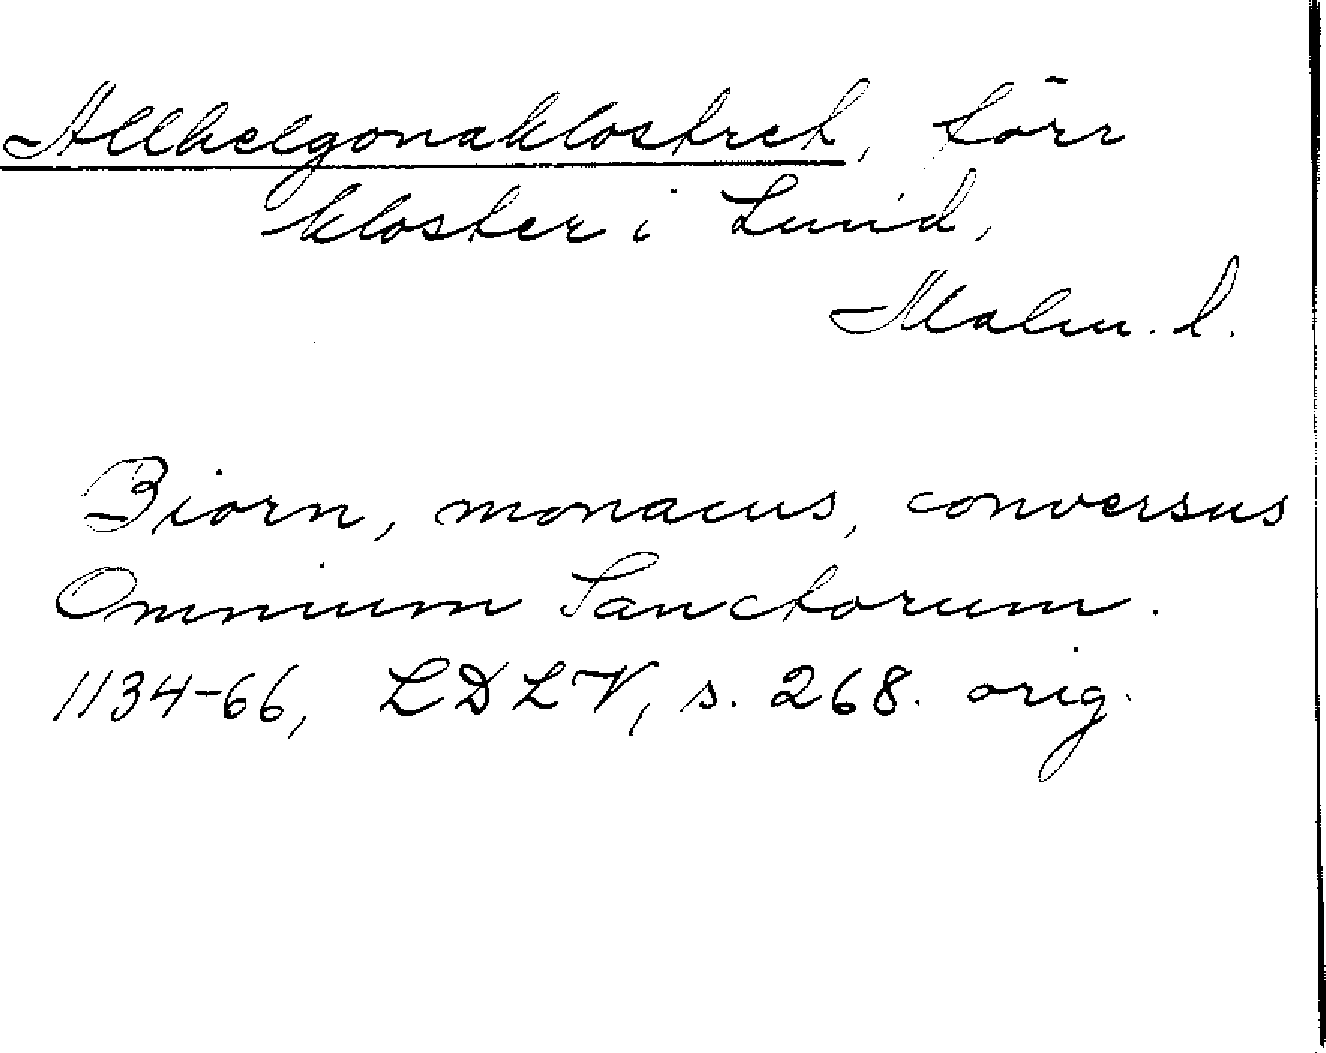 Allhelgonaklostret, förr
kloster i Lund,
Malm. l.
Biorn, monacus, conversus
Omnium Sanctorum.
1134-66, LDLV, s. 268. orig.